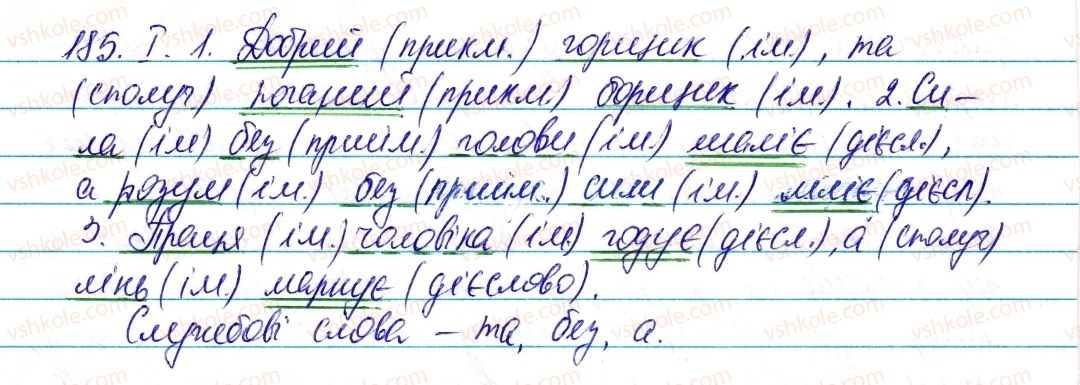 185. I. 1. Добрий (прикм.) горщик (ім.), та
(сполуч) поганий (прикм) борщик (ім.). 2. Си-
ла (ім) без (прийм.) голови (ім.) шаліє (дієсл.),
а розум (ім.) без (прийм.) сили (ім.) мліє (дієсл).
3. Праця (ім.) чоловіка (ім) годує (дієсл.), а (сполуч)
лінь (ім.) марнує (дієслово).
Службові слова – та, без, а.